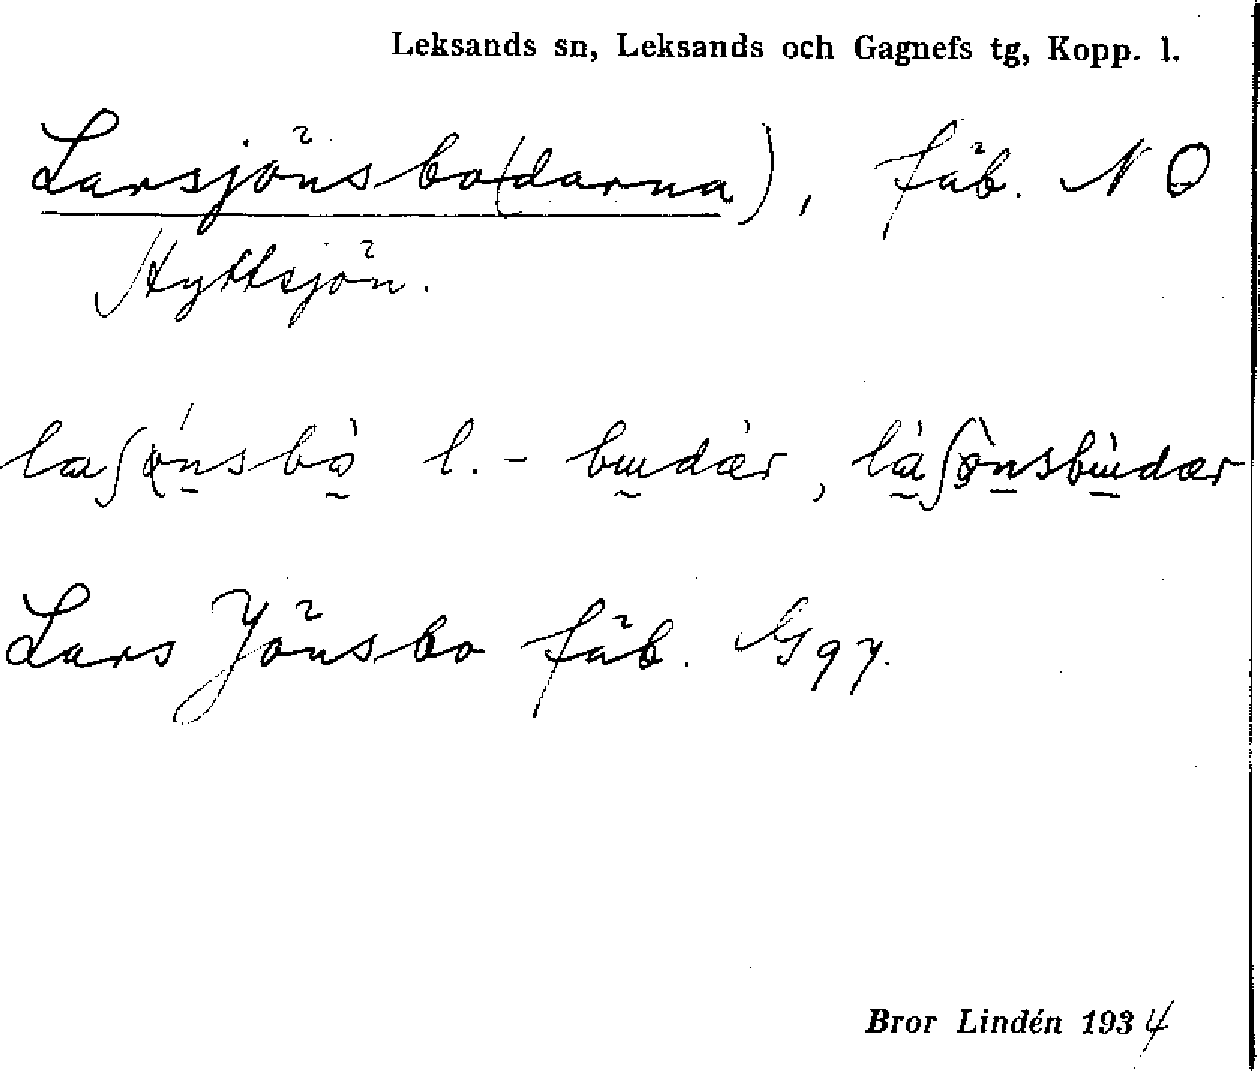 Leksands sn, Leksands och Gagnefs tg, Kopp. l.
Larsjönsbo(darna), fäb. NO
Hyttsjön.
l. -
Lars Jönsbo fäb. G97.
Bror Lindén 1934